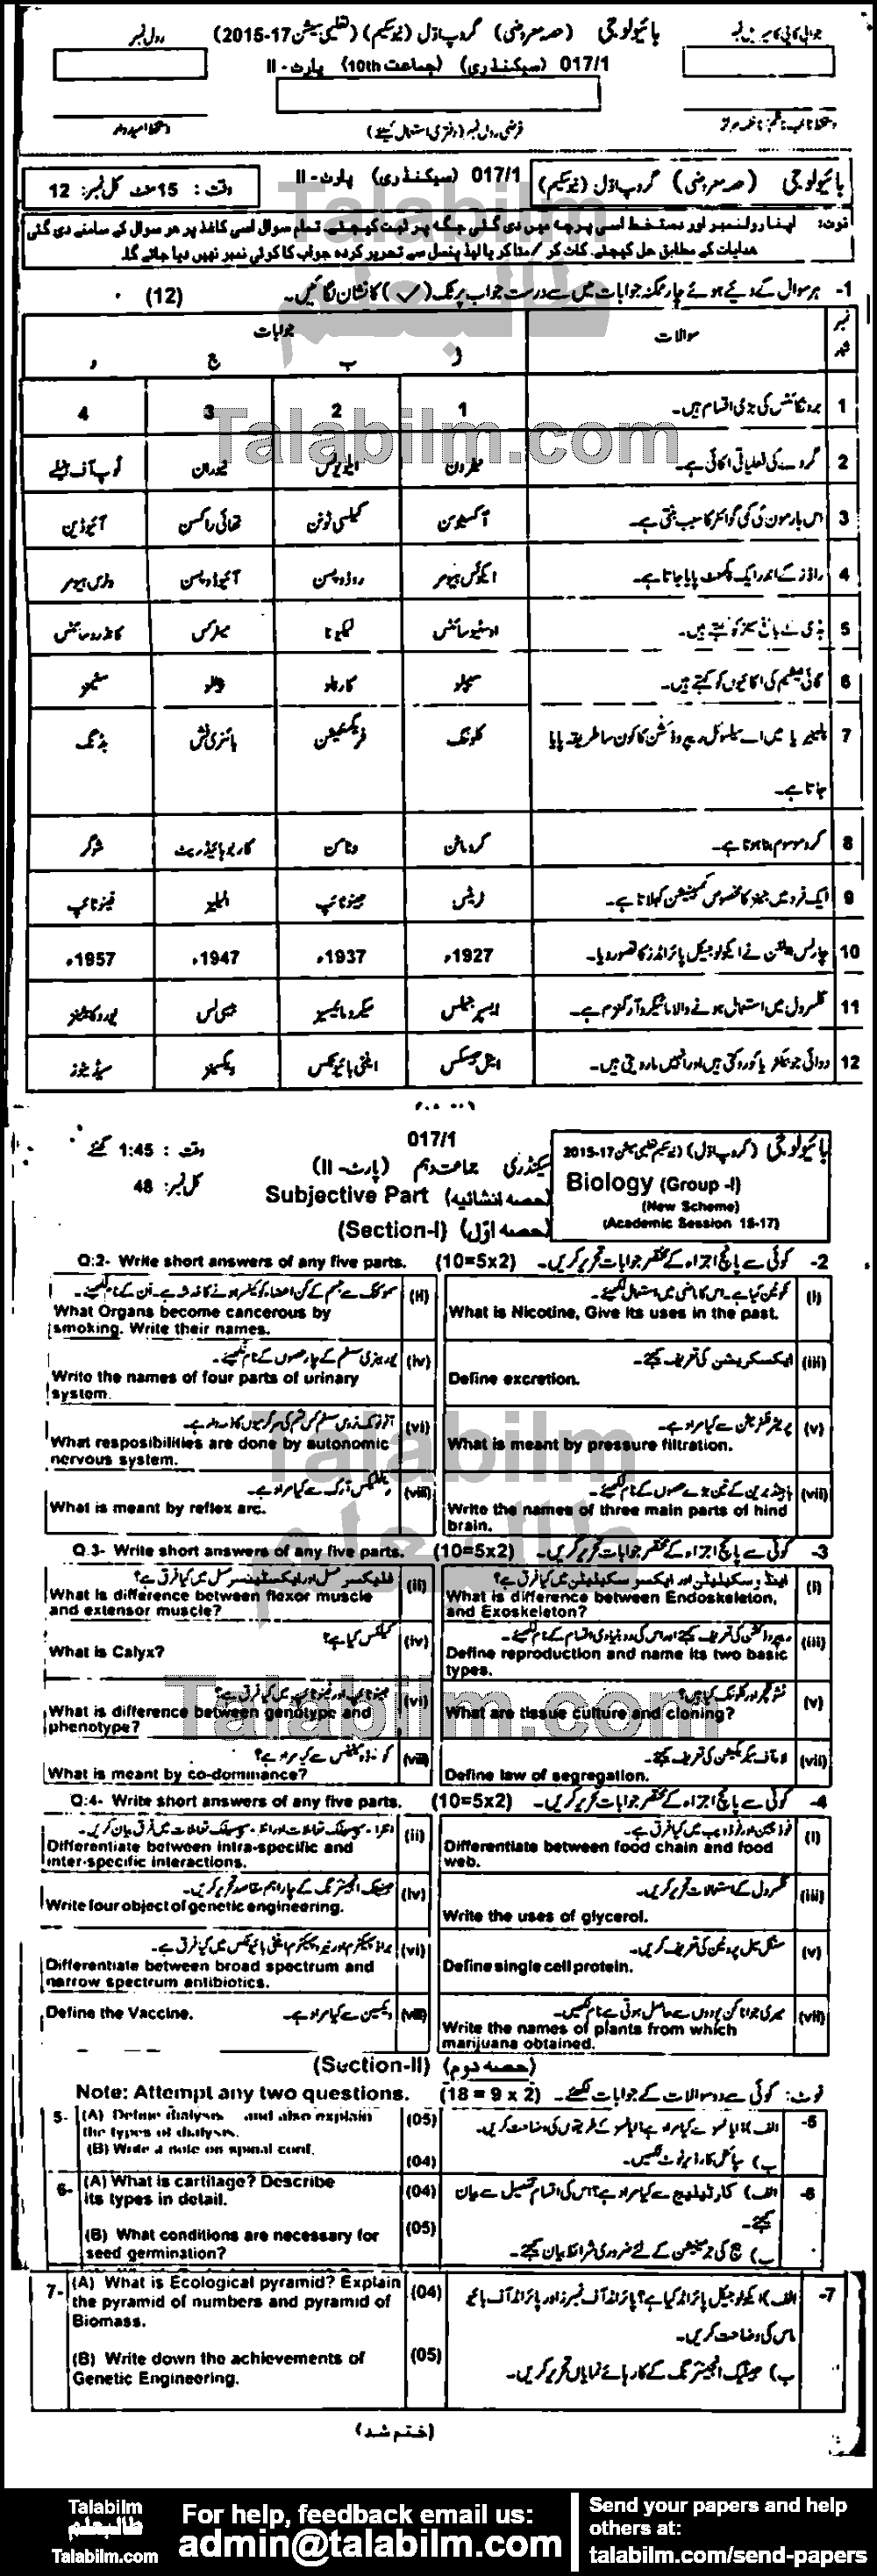 بائیولوجی (حصہ معروضی) گروپ اوّل (نیو سکیم) (تعلیمی سیشن 17-2015)
رول نمبر
017/1 (سیکنڈری) (جماعت 10th) پارٹ-II
فرضی رول نمبر (دفتری استعمال کیلئے)
دستخط امیدوار
بائیولوجی (حصہ معروضی) گروپ اوّل (نیو سکیم)
017/1 (سیکنڈری) پارٹ-II
وقت : 15 منٹ کل نمبر: 12
نوٹ: اپنا رولنمبر اور دستخط اسی پرچہ میں دی گئی جگہ پر ثبت کیجئے۔ تمام سوال اسی کاغذ پر ہر سوال کے سامنے دی گئی
ہدایات کے مطابق حل کیجئے۔ کاٹ کر / مٹا کر یا لیڈ پنسل سے تحریر کردہ جواب کا کوئی نمبر نہیں دیا جائے گا۔
1- ہر سوال کے دیئے ہوئے چار ممکنہ جوابات میں سے درست جواب پر ٹک (✓) کا نشان لگائیں۔ (12)
نمبر شمار سوالات جوابات
ا ب ج د
1 برونکائٹس کی بڑی اقسام ہیں۔ 1 2 3 4
2 گردے کی فعلیاتی اکائی ہے۔ نیفرون ایلویولس نیوران لوپ آف ہینلے
3 اس ہارمون کی کمی گوائٹر کا سبب بنتی ہے۔ آکسیٹوسن کیلسی ٹونن تھائی راکسن آئیوڈین
4 راڈز کے اندر ایک پگمنٹ پایا جاتا ہے۔ ایکوئس ہیومر روڈوپسن آئیوڈوپسن وٹرس ہیومر
5 ہڈی کے بالغ سیلز کو کہتے ہیں۔ اوسٹیوسائٹس لیکیونا میٹرکس کانڈروسائٹس
6 گائی نیشیم کی اکائیوں کو کہتے ہیں۔ سیپلز کارپلز پیٹلز سٹیمنز
7 پلینیریا میں اے سیکسوئل ریپروڈکشن کا کون سا طریقہ پایا
جاتا ہے۔ کلوننگ فریگمنٹیشن بائنری فشن بڈنگ
8 کروموسوم بنا ہوتا ہے۔ کروماٹن وٹامن کاربوہائیڈریٹ شوگر
9 ایک فرد میں جینز کا مخصوص کمبینیشن کہلاتا ہے۔ ٹریٹس جینوٹائپ الیلیز فینوٹائپ
10 چارلس ایلٹن نے ایکولوجیکل پائرامڈز کا تصور دیا۔ 1927ء 1937ء 1947ء 1957ء
11 گلیسرول میں استعمال ہونے والا مائیکرو آرگنزم ہے۔ ایسپرجیلس سیکرومائیسیز بیسی لس
12 دوائی جو بیکٹیریا کو روکتی ہیں اور انہیں مار دیتی ہیں۔ اینل جیسکس اینٹی بائیوٹکس ویکسینز سیڈیٹوز
بائیولوجی (گروپ اوّل) (نیو سکیم تعلیمی سیشن 17-2015)
Biology (Group -I)
(New Scheme)
(Academic Session 15-17)
017/1
سیکنڈری جماعت دہم (پارٹ-II)
Subjective Part (حصہ انشائیہ)
(Section-I) (حصہ اوّل)
وقت : 1:45 گھنٹے
کل نمبر: 48
Q:2- Write short answers of any five parts. (10=5x2) 2- کوئی سے پانچ اجزاء کے مختصر جوابات تحریر کریں۔
(i) نکوٹین کیا ہے۔ اس کا ماضی میں استعمال لکھیئے۔
What is Nicotine, Give its uses in the past.
(ii) سموکنگ سے جسم کے کن اعضاء کو کینسر ہونے کا خدشہ ہے۔ ان کے نام لکھیئے۔
What Organs become cancerous by
smoking. Write their names.
(iii) ایکسکریشن کی تعریف کیجئے۔
Define excretion.
(iv) یورینری سسٹم کے چار حصوں کے نام لکھیئے۔
Write the names of four parts of urinary
system.
(v) پریشر فلٹریشن سے کیا مراد ہے۔
What is meant by pressure filtration.
(vi) آٹونومک نروس سسٹم کس قسم کی سرگرمیوں کا ذمہ دار ہے۔
What resposibilities are done by autonomic
nervous system.
(vii) ہائنڈ برین کے تین بڑے حصوں کے نام لکھیئے۔
Write the names of three main parts of hind
brain.
(viii) ریفلیکس آرک سے کیا مراد ہے۔
What is meant by reflex arc.
Q.3- Write short answers of any five parts. (10=5x2) 3- کوئی سے پانچ اجزاء کے مختصر جوابات تحریر کریں۔
(i) اینڈوسکیلیٹن اور ایکسوسکیلیٹن میں کیا فرق ہے؟
What is difference between Endoskeleton,
and Exoskeleton?
(ii) فلیکسر مسل اور ایکسٹینسر مسل میں کیا فرق ہے؟
What is difference between flexor muscle
and extensor muscle?
(iii) ریپروڈکشن کی تعریف کیجئے اور اس کی دو بنیادی اقسام کے نام لکھیئے۔
Define reproduction and name its two basic
types.
(iv) کیلکس کیا ہے؟
What is Calyx?
(v) ٹشو کلچر اور کلوننگ کیا ہیں؟
What are tissue culture and cloning?
(vi) جینوٹائپ اور فینوٹائپ میں کیا فرق ہے؟
What is difference between genotype and
phenotype?
(vii) لاء آف سیگریگیشن کی تعریف کیجئے۔
Define law of segregation.
(viii) کو ڈومیننس سے کیا مراد ہے؟
What is meant by co-dominance?
Q:4- Write short answers of any five parts. (10=5x2) 4- کوئی سے پانچ اجزاء کے مختصر جوابات تحریر کریں۔
(i) فوڈ چین اور فوڈ ویب میں کیا فرق ہے۔
Differentiate between food chain and food
web.
(ii) انٹرا سپیسیفک تعاملات اور انٹر سپیسیفک تعاملات میں فرق بیان کریں۔
Differentiate between intra-specific and
inter-specific interactions.
(iii) گلیسرول کے استعمالات تحریر کریں۔
Write the uses of glycerol.
(iv) جینیٹک انجینئرنگ کے چار اہم مقاصد تحریر کریں۔
Write four object of genetic engineering.
(v) سنگل سیل پروٹین کی تعریف کریں۔
Define single cell protein.
(vi) براڈ سپیکٹرم اور نیرو سپیکٹرم اینٹی بائیوٹکس میں کیا فرق ہے۔
Differentiate between broad spectrum and
narrow spectrum antibiotics.
(vii) میری جوانا کن پودوں سے حاصل ہوتی ہے نام لکھیں۔
Write the names of plants from which
marijuana obtained.
(viii) ویکسین سے کیا مراد ہے۔
Define the Vaccine.
(Section-II) (حصہ دوم)
Note: Attempt any two questions. (18 = 9 x 2) نوٹ: کوئی سے دو سوالات کے جوابات لکھئے۔
5- (A) Define dialysis and also explain
the types of dialysis. (05)
(B) Write a note on spinal cord. (04)
5- الف) ڈایالسز سے کیا مراد ہے؟ ڈایالسز کے طریقوں کی وضاحت کریں۔
ب) سپائنل کارڈ پر نوٹ لکھیں۔
6- (A) What is cartilage? Describe
its types in detail. (04)
(B) What conditions are necessary for
seed germination? (05)
6- الف) کارٹیلیج سے کیا مراد ہے؟ اس کی اقسام تفصیل سے بیان
کیجئے۔
ب) بیج کی جرمینیشن کے لئے ضروری شرائط بیان کیجئے۔
7- (A) What is Ecological pyramid? Explain
the pyramid of numbers and pyramid of
Biomass. (04)
(B) Write down the achievements of
Genetic Engineering. (05)
7- الف) ایکولوجیکل پائرامڈ کیا ہے؟ پائرامڈ آف نمبرز اور پائرامڈ آف بائیو
ماس کی وضاحت کریں۔
ب) جینیٹک انجینئرنگ کے کارہائے نمایاں تحریر کریں۔
(ختم شد)
Talabilm
طالبعلم
Talabilm.com
For help, feedback email us:
admin@talabilm.com
Send your papers and help
others at:
talabilm.com/send-papers